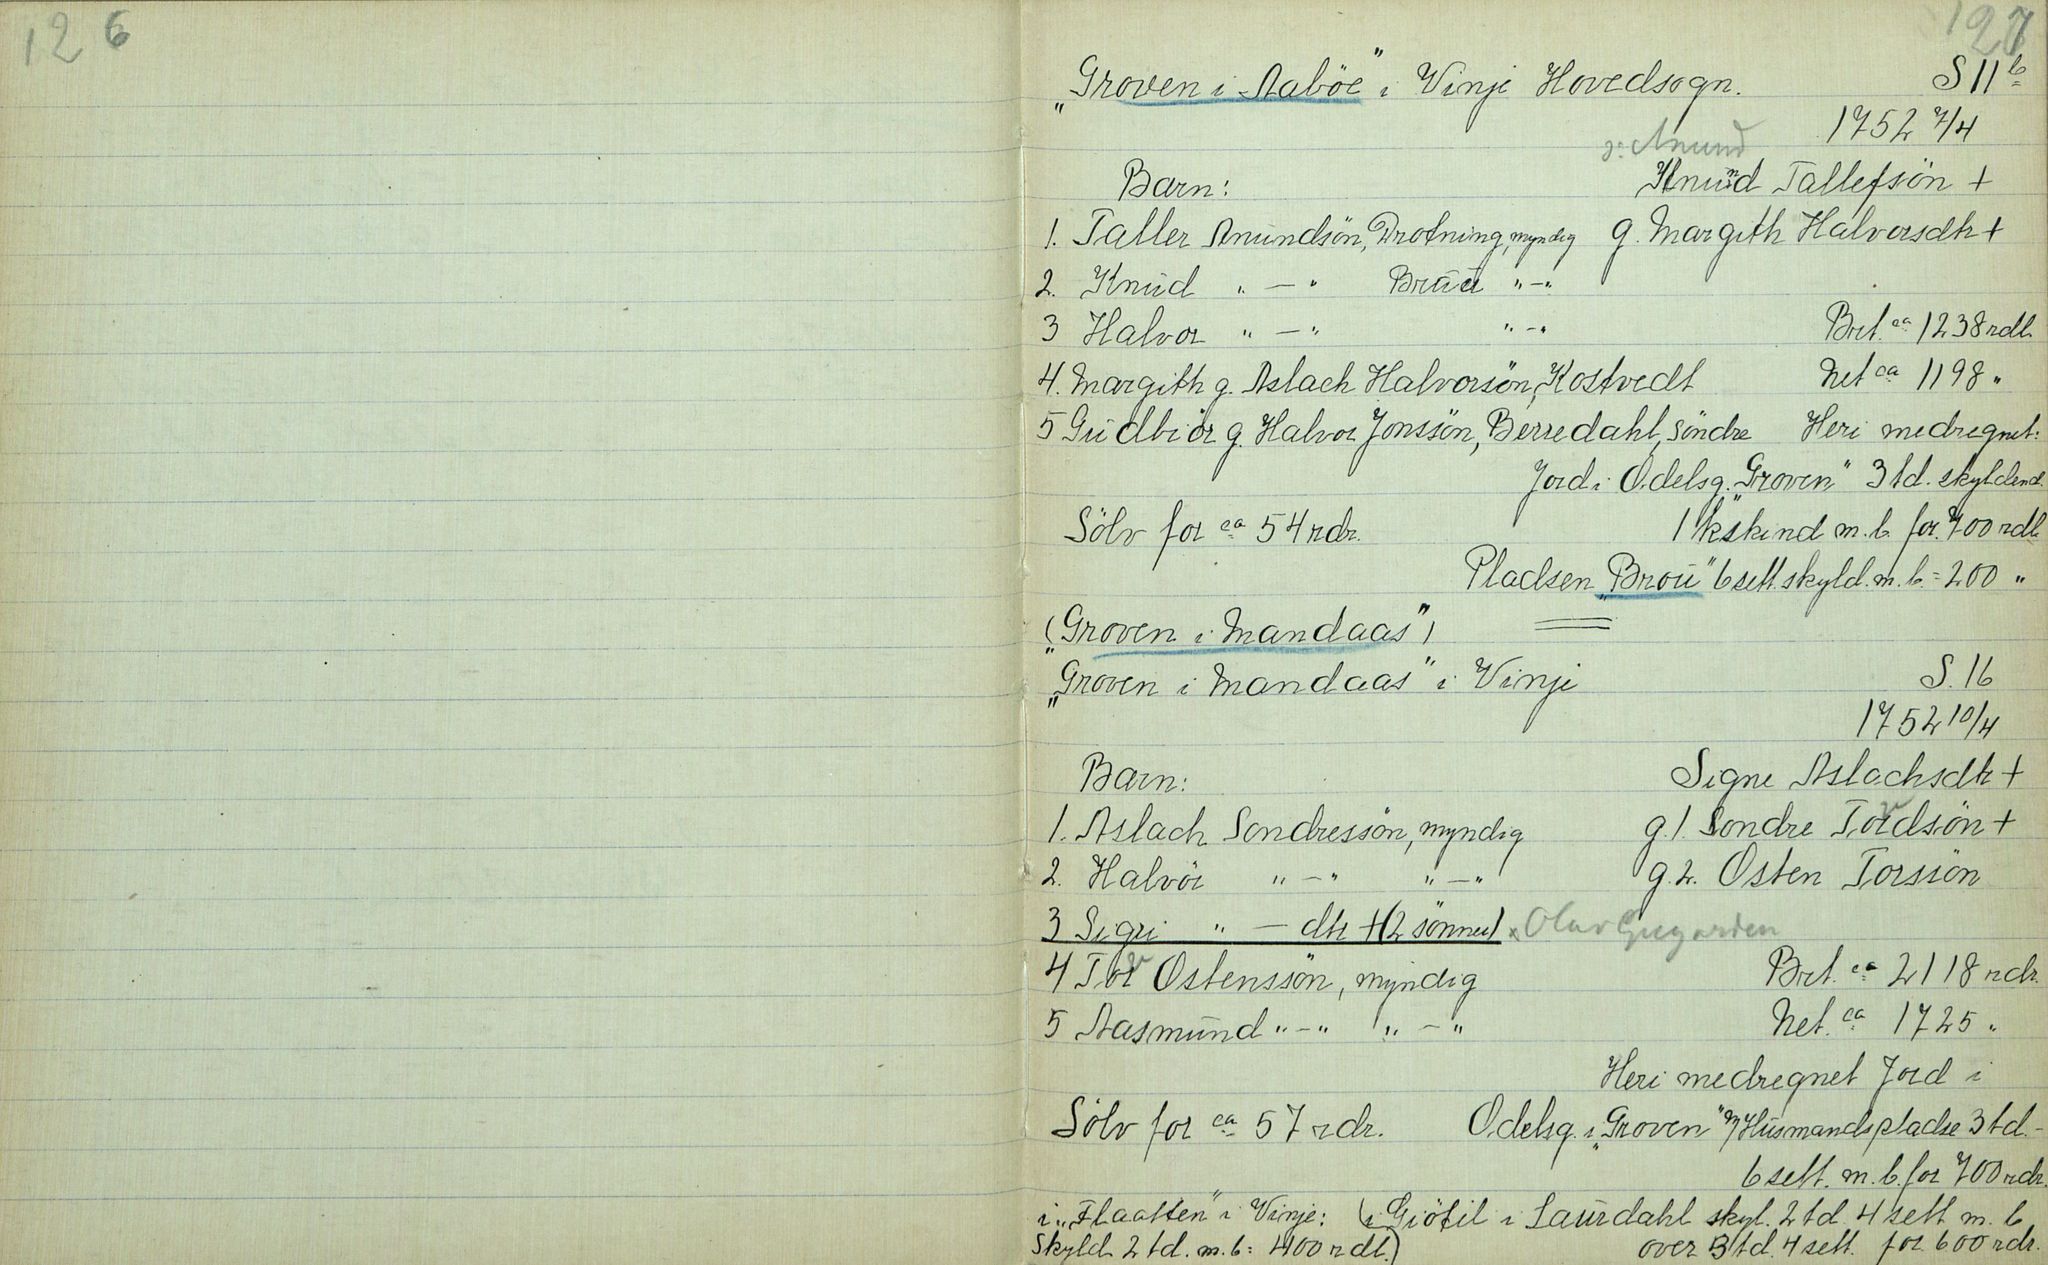 126
127
„Groven i Aaböe" i Vinje Hovedsogn. S 11b
1752 7/4
ɔ: Anund
Barn: Knund Tallefsön +
1. Tallef Anundsön, Drotning, myndig g. Margith Halvorsdtr +
2. Knud " — " Bruu " — "
3 Halvor " — " " — " Brt. ca 1238 rdl.
4. Margith g. Aslach Halvorsön, Kostvedt Net ca 1198 "
5 Gudbiör g. Halvor Jonssön, Berredahl, söndre Heri medregnet:
Jord i Odelsg. „Groven" 3 td. skyldend.
Sölv for ca 54 rdr. 1 kskind m. b. for 700 rdl.
Pladsen „Brou" 6 sett. skyld. m. b. = 200 "
(„Groven i Mandaas")
„Groven i Mandaas" i Vinje S. 16
1752 10/4
Barn: Signe Aslachsdtr +
1. Aslach Sondressön, myndig g. 1. Sondre Tordsön +
2. Halvör " — " " — " g. 2. Östen Torssön
3 Sigri " — dtr + (2 sönner) x Olav Gugarden
4 Tor Östenssön, myndig Brt. ca 2118 rdr.
5 Aasmund " — " " — " Net. ca 1725 "
Heri medregnet Jord i
Sölv for ca 57 rdr. Odelsg. i „Groven" m/ Husmandspladse 3 td. -
6 sett. m. b. for 700 rdr.
i „Flaatten" i Vinje: (i Giöfil i Laurdahl skyl. 2 td 4 sett m. b
Skyld 2 td. m. b: 400 rdl.) over 3 td. 4 sett. for 600 rdr.